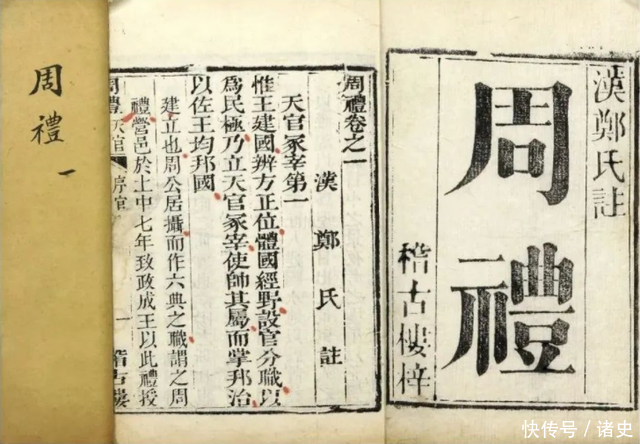 漢鄭氏註
周禮
稽古樓梓
周禮卷之一
漢鄭氏註
天官冢宰第一
惟王建國辨方正位體國經野設官分職以
爲民極乃立天官冢宰使帥其屬而掌邦治
以佐王均邦國
建立也周公居攝而作六典之職謂之周
禮營邑於土中七年致政成王以此禮授
周禮天官 序官 一 稽古樓
周禮 一
快传号/诸史